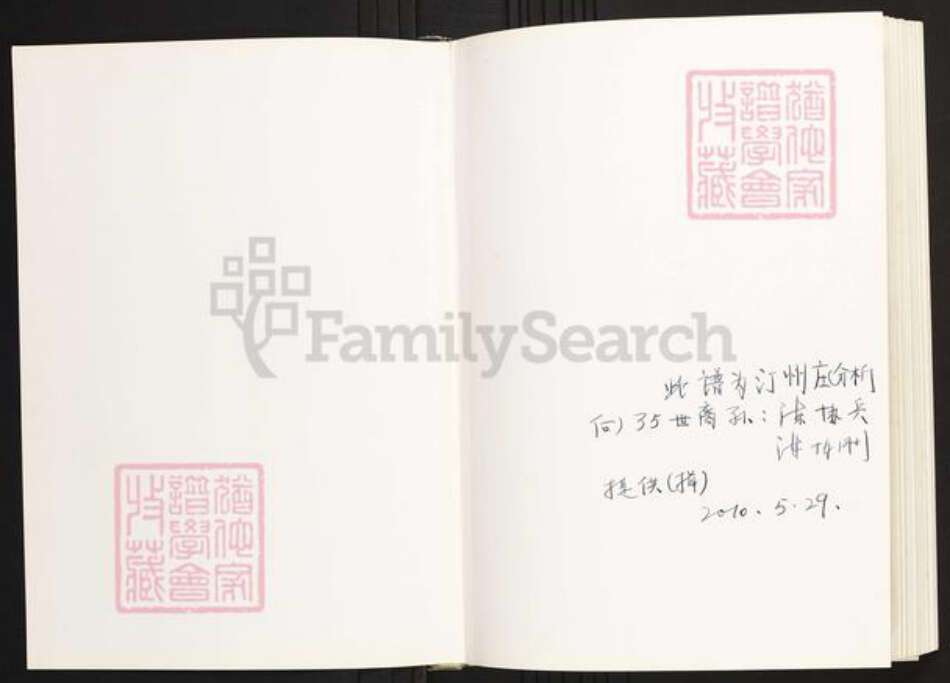 猶他家
譜學會
收藏
FamilySearch
此譜为汀州庄(分析
何) 35世裔孙:
提供(捐)
2010.5.29.
猶他家
譜學會
收藏